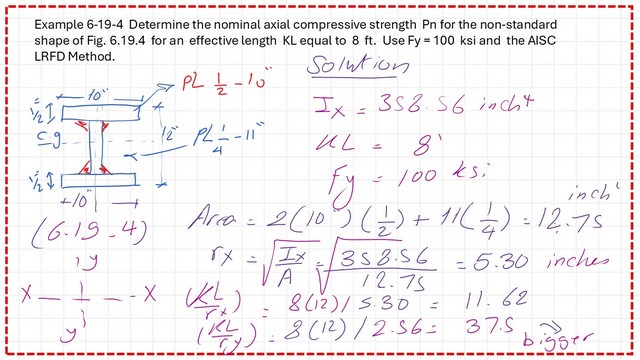 Example 6-19-4 Determine the nominal axial compressive strength Pn for the non-standard
shape of Fig. 6.19.4 for an effective length KL equal to 8 ft. Use Fy = 100 ksi and the AISC
LRFD Method.
Solution
10"
PL 1/2 - 10"
1/2"
c.g
12"
PL 1/4 - 11"
1/2"
10"
(6-19-4)
Ix = 358.56 inch4
KL = 8'
Fy = 100 ksi
Area = 2(10")(1/2) + 11(1/4) = 12.75 inch
rx = √Ix/A = √358.56/12.75 = 5.30 inches
(KL/rx) = 8(12)/5.30 = 11.62
(KL/ry) = 8(12)/2.56 = 37.5 bigger
y
X - - X
y